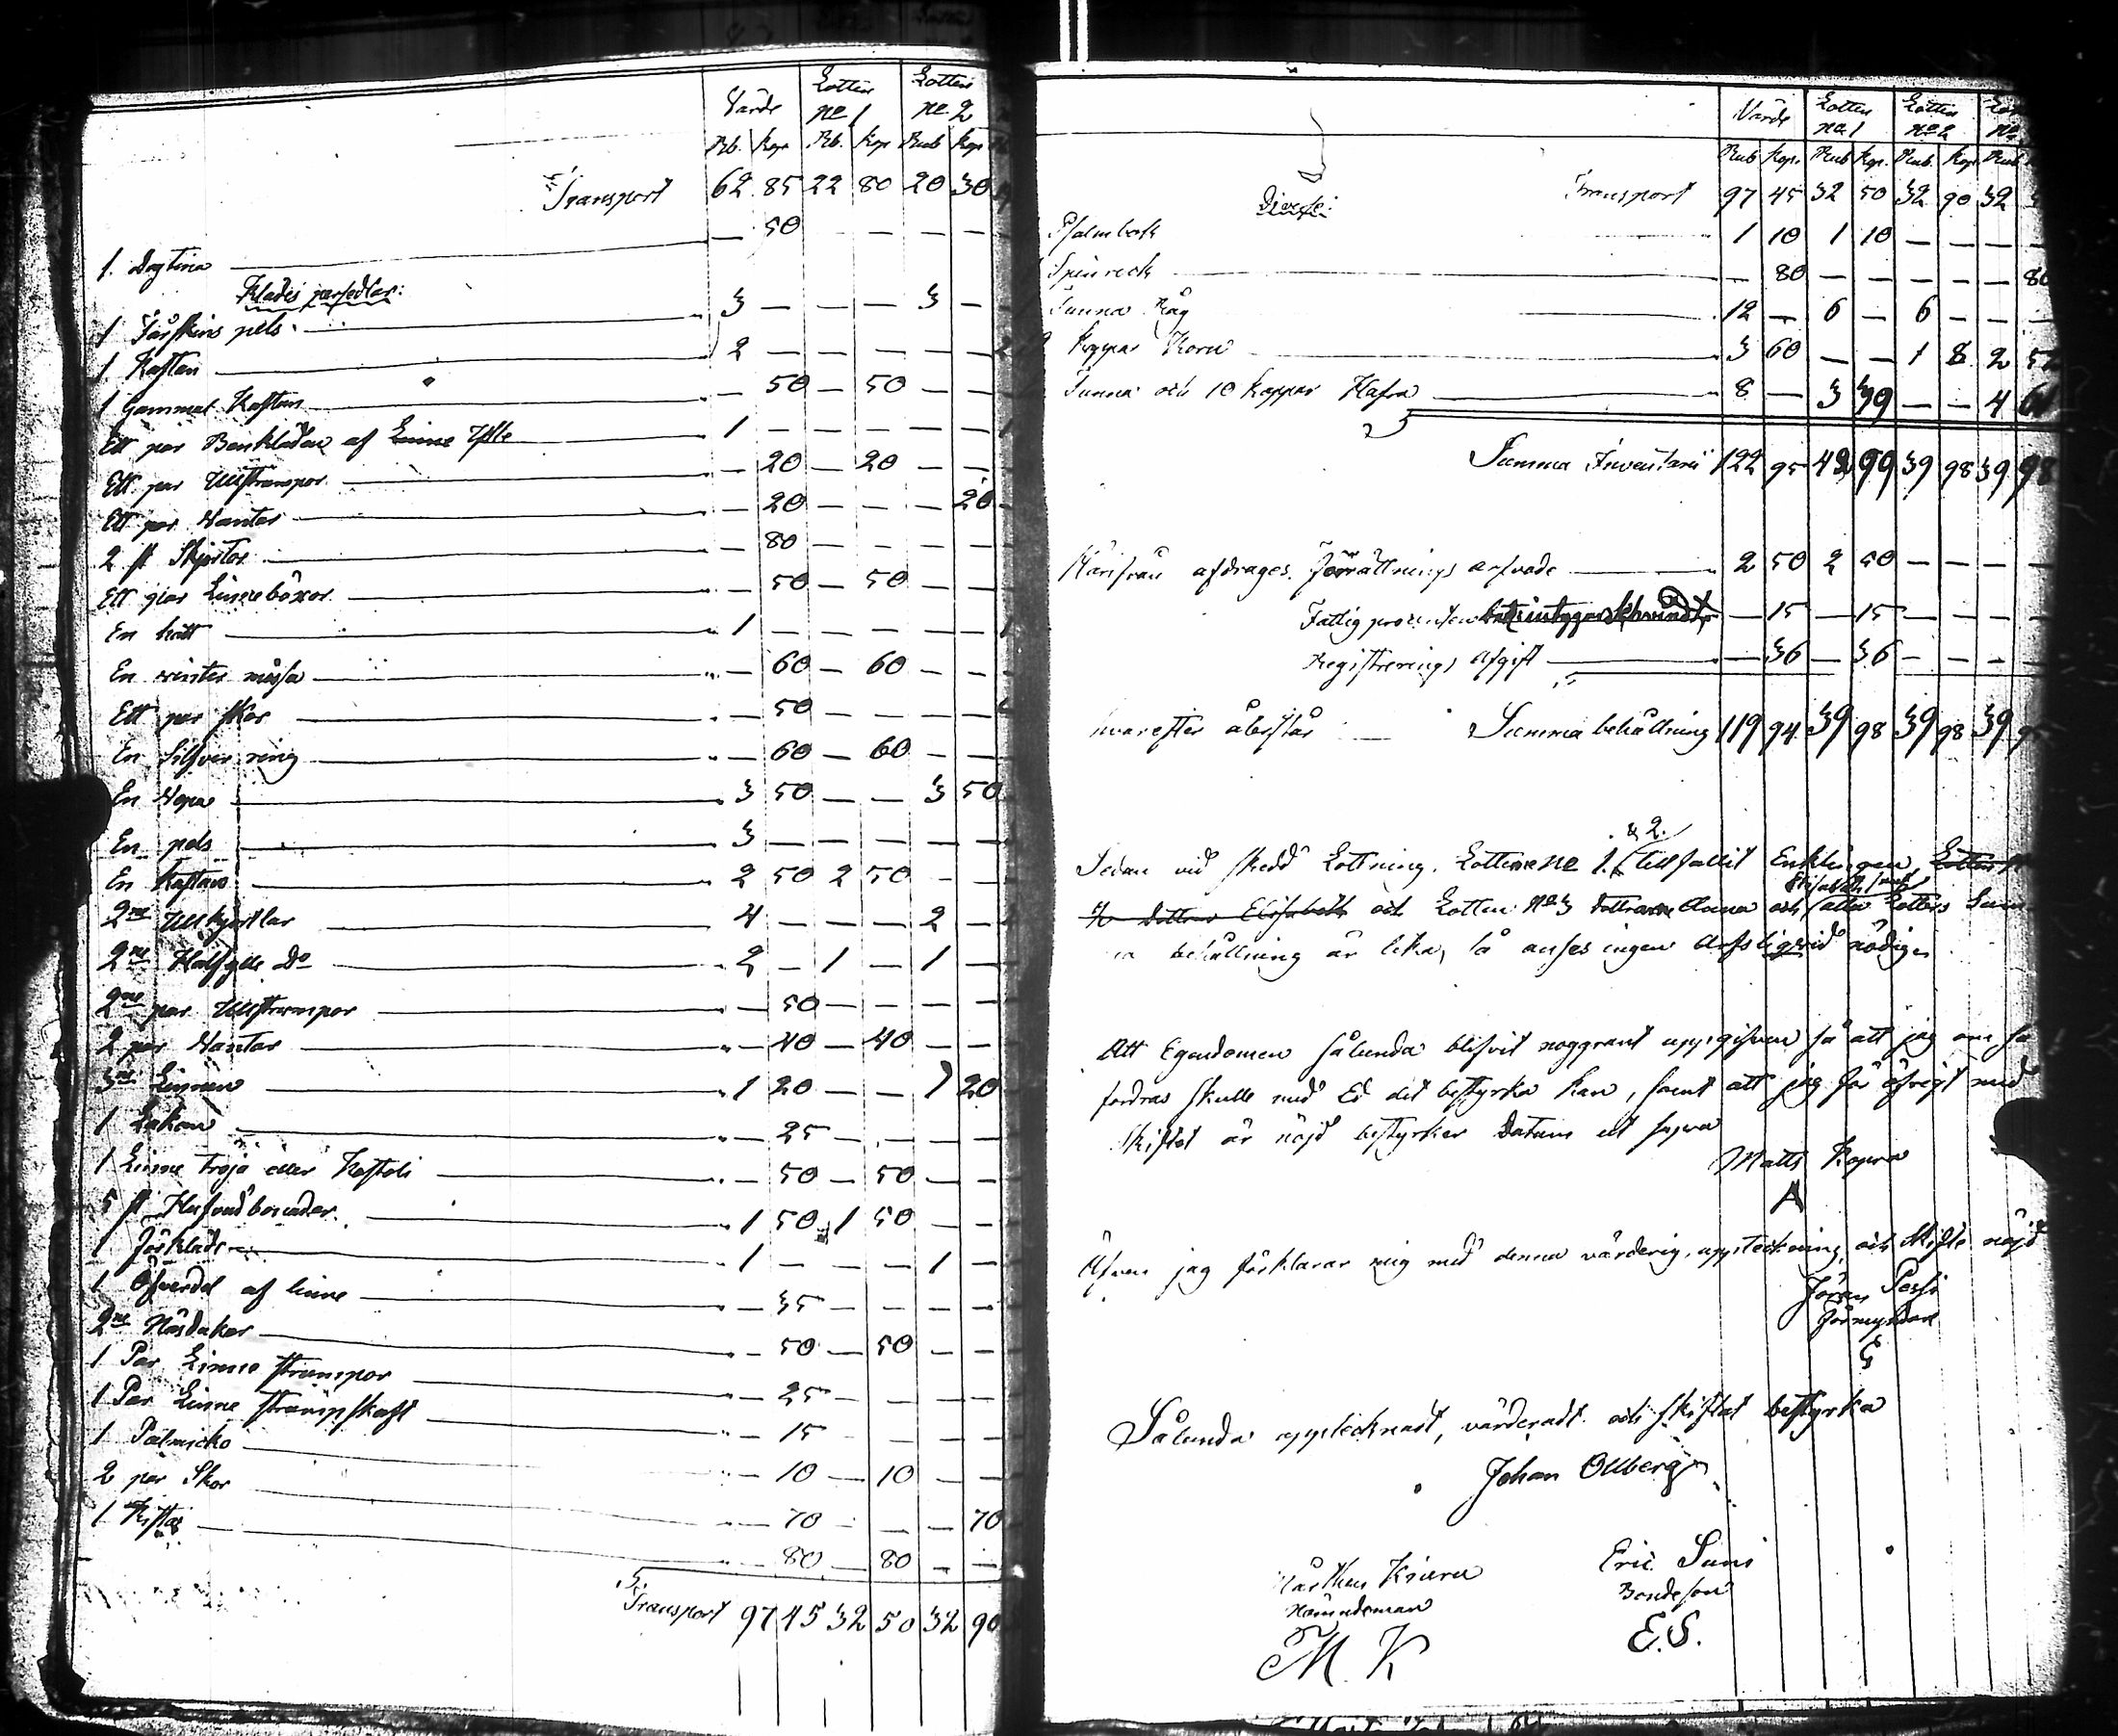 Värde Lotten Lotten
No 1 No 2
Rb. Kop Rb. Kop Rub Kop
Transport 62 85 22 80 20 30
1 Degtina — 50 — — — —
Klädes persedlar:
1 Fårskins pels 3 — — — 3 —
1 Kaftan 2 — — — — —
1 Gammal Kaftan — 50 — 50 — —
Ett par Benkläder af Linne Ylle 1 — — — — —
Ett par Ullstrumpor — 20 — 20 — —
Ett par Vantar — 20 — — — 20
2 st Skjortor — 80 — — — —
Ett par Linneböxor — 50 — 50 — —
En hatt 1 — — — — —
En winter mössa — 60 — 60 — —
Ett par skor — 50 — — — —
En Silfver ring — 60 — 60 — —
En 3 50 — — 3 50
En pels 3 — — — — —
En Kaftan 2 50 2 50 — —
2ne Ullkjortlar 4 — — — 2 —
2ne Halfylle Do 2 — 1 — 1 —
2ne par Ullstrumpor — 50 — — — —
2 par Vantar — 40 — 40 — —
3ne Linnen 1 20 — — 1 20
1 Lakan — 25 — — — —
1 Linne tröja eller Kostoli — 50 — 50 — —
5 st Hufvudbonader 1 50 1 50 — —
1 Förkläde 1 — — — 1 —
1 Öfverdel af linne — 35 — — — —
2ne Näsdukar — 50 — 50 — —
1 Par Linne strumpor — 25 — — — —
1 Par Linne strumpskaft — 15 — — — —
1 — 10 — 10 — —
2 par Skor — 70 — — — 70
1 Kista — 80 — 80 — —
Transport 97 45 32 50 32 90
Värde Lotten Lotten
No 1 No 2 No
Rub Kop. Rub Kop. Rub. Kop Rub
Diverse: Transport 97 45 32 50 32 90 32
Psalmbok 1 10 1 10 — — —
Spinrock — 80 — — — — — 80
Tunna Råg 12 — 6 — 6 — —
Kappar Korn 3 60 — — 1 8 2 52
Tunna och 10 kappar Hafra 8 — 3 39 — — 4 61
Summa Inventarii 122 95 42 99 39 98 39 98
Härifrån afdrages Förrättnings arfvode 2 50 2 50 — — —
Fattig procenten — 15 — 15 — — —
Registrerings Afgift — 36 — 36 — — —
hvarefter återstår — Summa behållning 119 94 39 98 39 98 39
& 2.
Sedan vid skedd Lottning, Lotterne No 1. tillfallit Enklingen Lotten
Elisabeth
Dottren Elisabeth och Lotten No 3 dottrarne Anna och alla Lotters Sum
ma behållning är lika, så anses ingen nödig.
Att Egendomen sålunda blifvit noggrant uppgifven så att jag om så
fordras skulle med Ed det bestyrka kan, samt att jag för öfrigt med
Skiftet är nöjd bestyrker Datum ut supra
Matts Kopra
A
Äfven jag förklarar mig med denna värdering, uppteckning, och skifte nöjd
Jöran Pessi
Förmyndare
Sålunda upptecknadt, värderadt och skiftat bestyrka
Johan Ollberg
Nämndeman
M. K
Eric Suni
Bondeson
E.S.